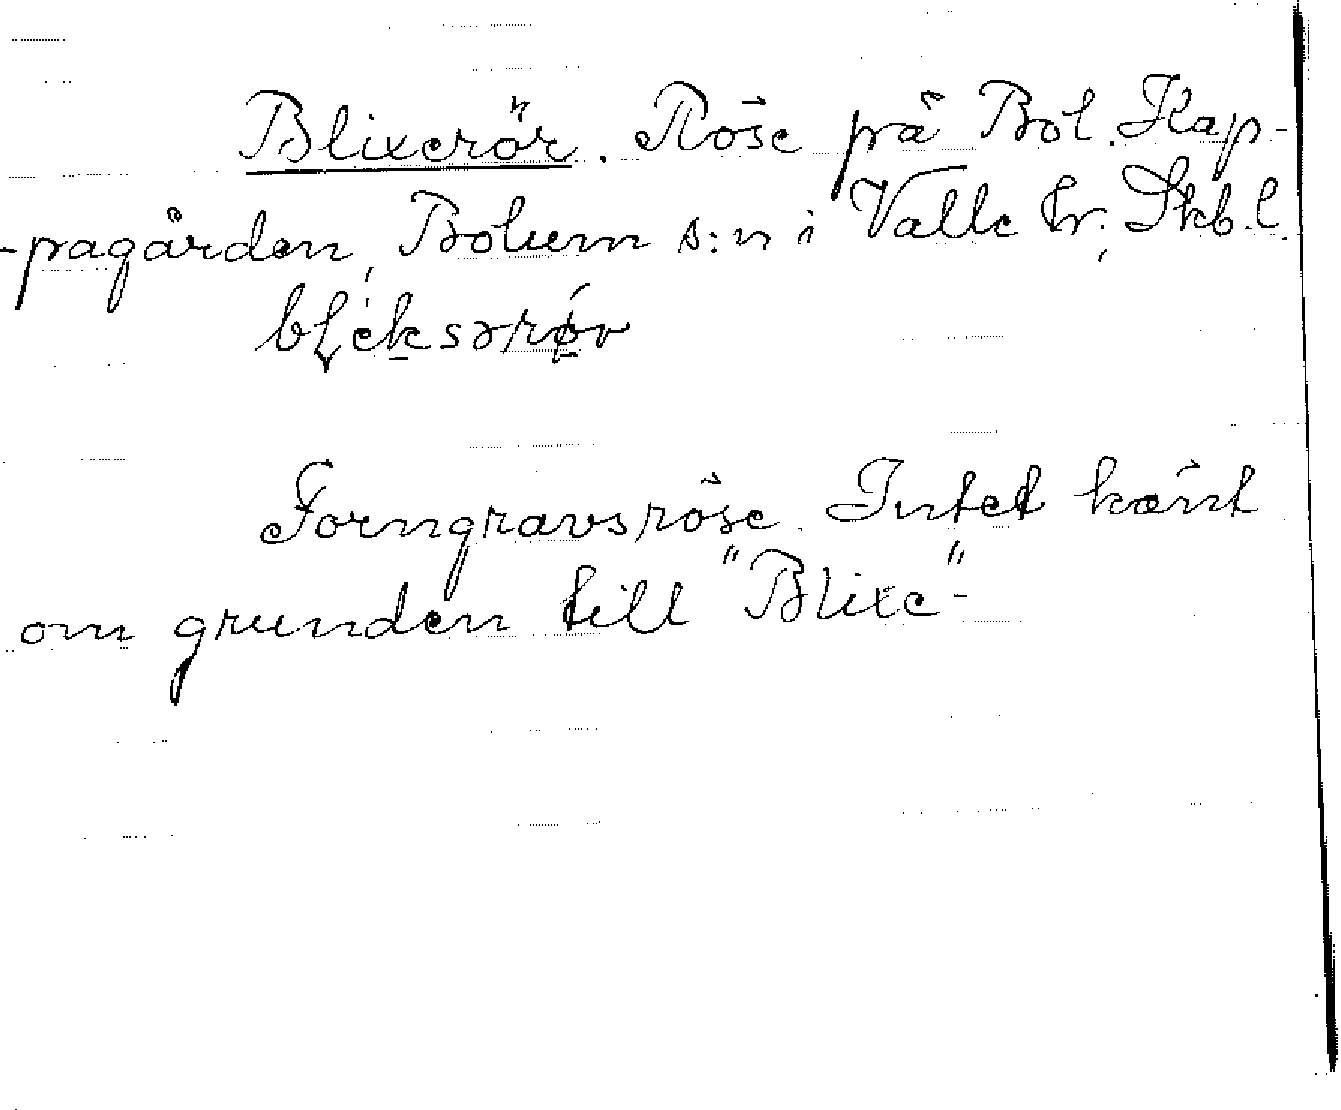 Blixerör. Röse på Bol. Kap-
-pagården, Bolum s:n i Valle hr; Skb.l.
Forngravsröse. Intet känt
om grunden till "Blixe"-